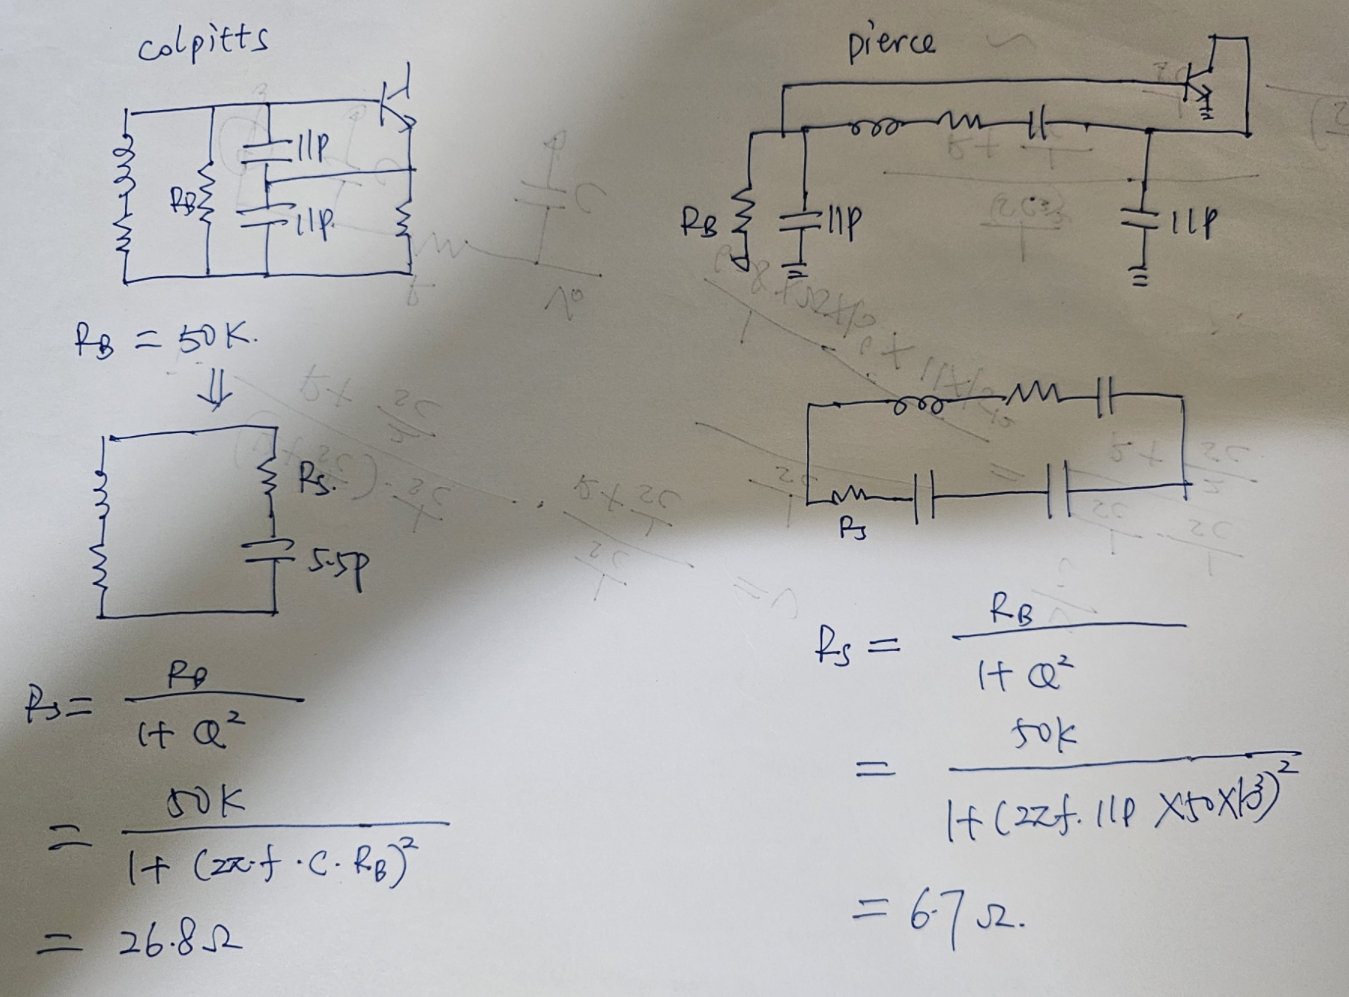 colpitts
11P
RB
11P.
RB = 50K.
⇓
Rs.
5.5P
Rs = RB / 1+Q²
= 50K / 1+(2π·f·C·RB)²
= 26.8Ω
pierce
RB
11P
11P
Rs
Rs = RB / 1+Q²
= 50K / 1+(2πf·11P×50×10³)²
= 6.7Ω.